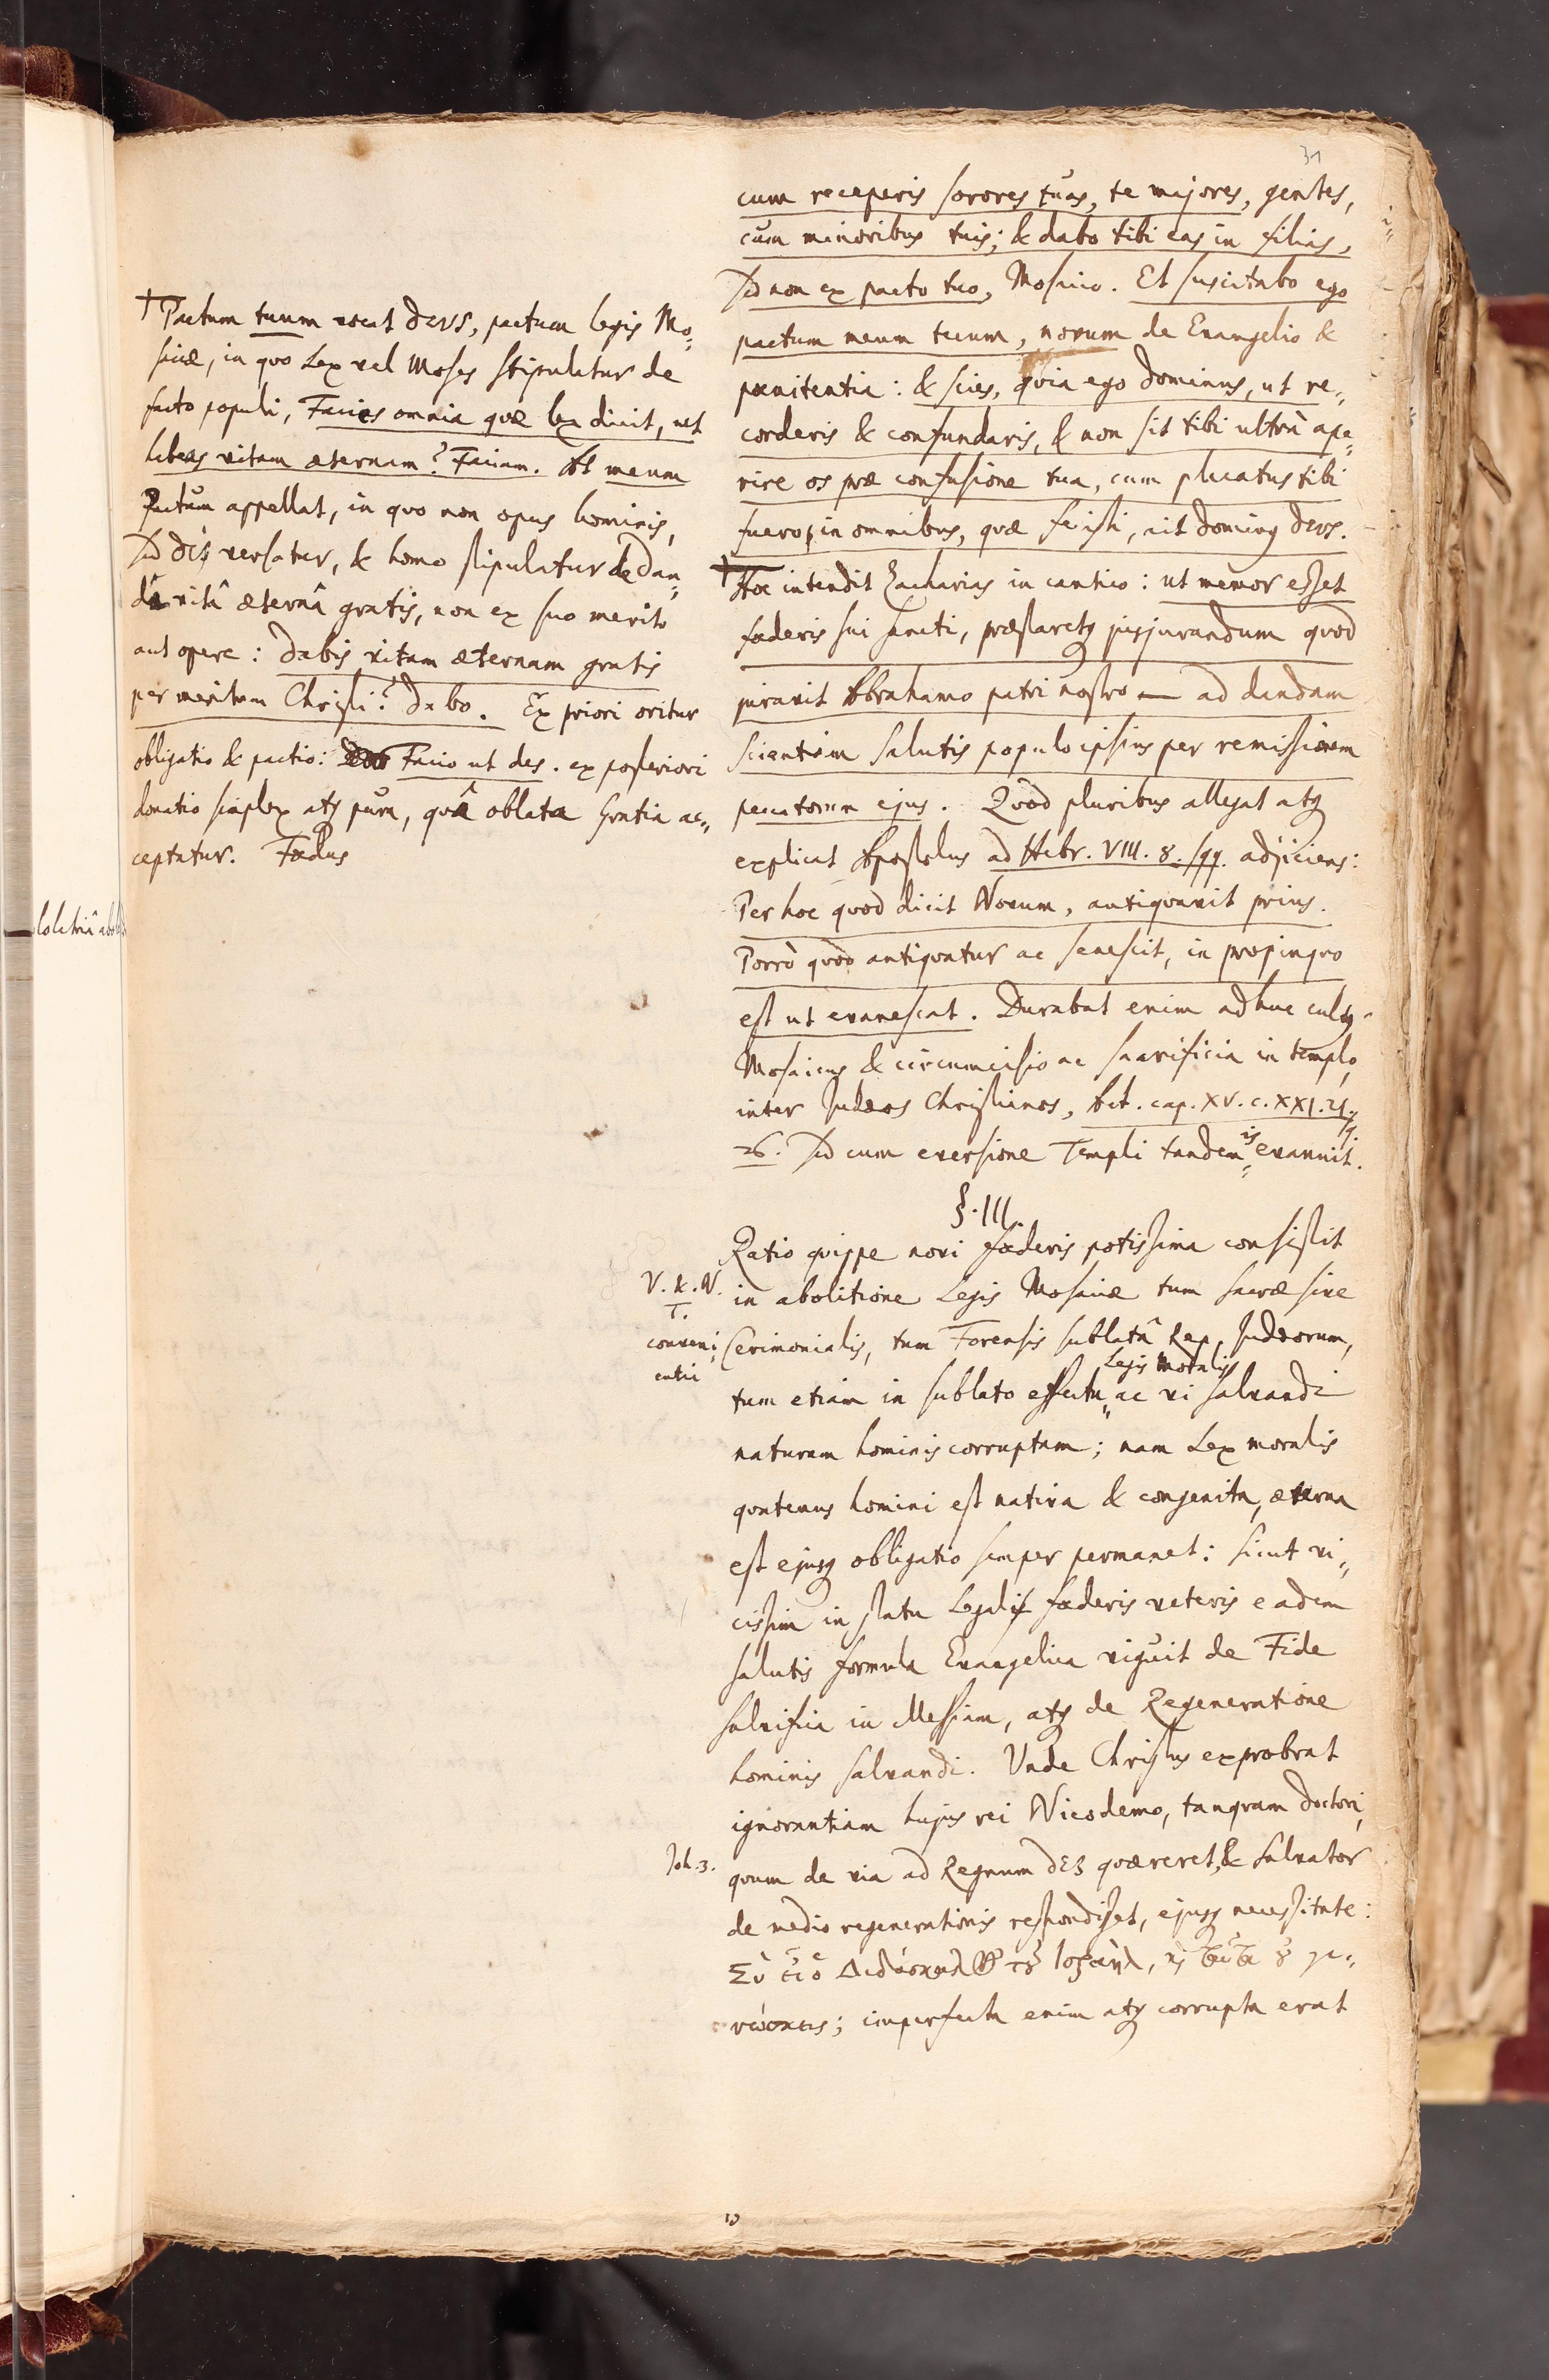 31
cum receperis sorores tuas, te majores, gentes,
cum minoribus tuis; & dabo tibi eas in filias,
sed non ex pacto tuo, Mosaico. Et suscitabo ego
pactum meum tecum, novum de Evangelio &
pœnitentia: & scies, quia ego Dominus, ut re„
corderis & confundaris, & non sit tibi ultrà ape„
rire os præ confusione tua, cum placatus tibi
fuero, in omnibus, quæ fecisti, ait Dominꝰ DEUS.
† Hoc intendit Zacharias in cantico: ut memor esset
fœderis sui sancti, præstaretqꝫ jusjurandum quod
juravit Abrahamo patri nostro — ad dandam
scientiam salutis populo ipsius per remissionem
peccatorum ejus. Quod pluribus allegat atqꝫ
explicat Apostolus ad Hebr. VIII. 8. sqq. adjiciens:
Per hoc quod dicit Novum, antiquavit prius.
Porrò quod antiquatur ac senescit, in propinquo
est ut evanescat. Durabat enim adhuc cultꝰ
Mosaicus & circumcisio ac sacrificia in templo,
inter Judæos Christianos, Act. cap. XV. c. XXI. 21.
26. sed cum eversione Templi tandem is evanuit.
§. III.
Ratio quippe novi fœderis potissima consistit
in abolitione Legis Mosaicæ tum sacræ sive
Cerimonialis, tum Forensis sublatâ Rep. Judæorum,
Legis moralis
tum etiam in sublato effectu„ ac vi salvandi
naturam hominis corruptam; nam Lex moralis
quatenus homini est nativa & congenita, æterna
est ejusqꝫ obligatio semper permanet: sicut vi„
cissim in statu Legali fœderis veteris eadem
salutis formula Evangelica viguit de Fide
salvifica in Messiam, atqꝫ de Regeneratione
hominis salvandi. Unde Christus exprobrat
ignorantiam hujus rei Nicodemo, tanquam doctori,
quum de via ad Regnum DEI quæreret, & Salvator
de medio regenerationis respondisset, ejusqꝫ necessitate:
Σὺ εἶ ὁ Διδάσκαλος τοῦ Ἰσραὴλ, καὶ ταῦτα οὐ γι„
νώσκεις; imperfecta enim atqꝫ corrupta erat
† Pactum tuum vocat DEUS, pactum legis Mo„
saicæ, in quo Lex vel Moses stipulatur de
facto populi, Facies omnia quæ lex dicit, ut
habeas vitam æternam? Faciam. At meum
Pactum appellat, in quo non opus hominis,
sed DEI versatur, & homo stipulatur de dan„
dâ vitâ æternâ gratis, non ex suo merito
aut opere: Dabis vitam æternam gratis
per meritum Christi? Dabo. Ex priori oritur
obligatio & pactio: Facio ut des. ex posteriori
donatio simplex atqꝫ pura, quâ oblata Gratia ac„
ceptatur. Fœdus
V. & N.
T.
conveni„
entia
Joh. 3.